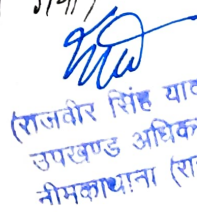 (राजवीर सिंह याद
उपखण्ड अधिक
नीमकाथाना (रा